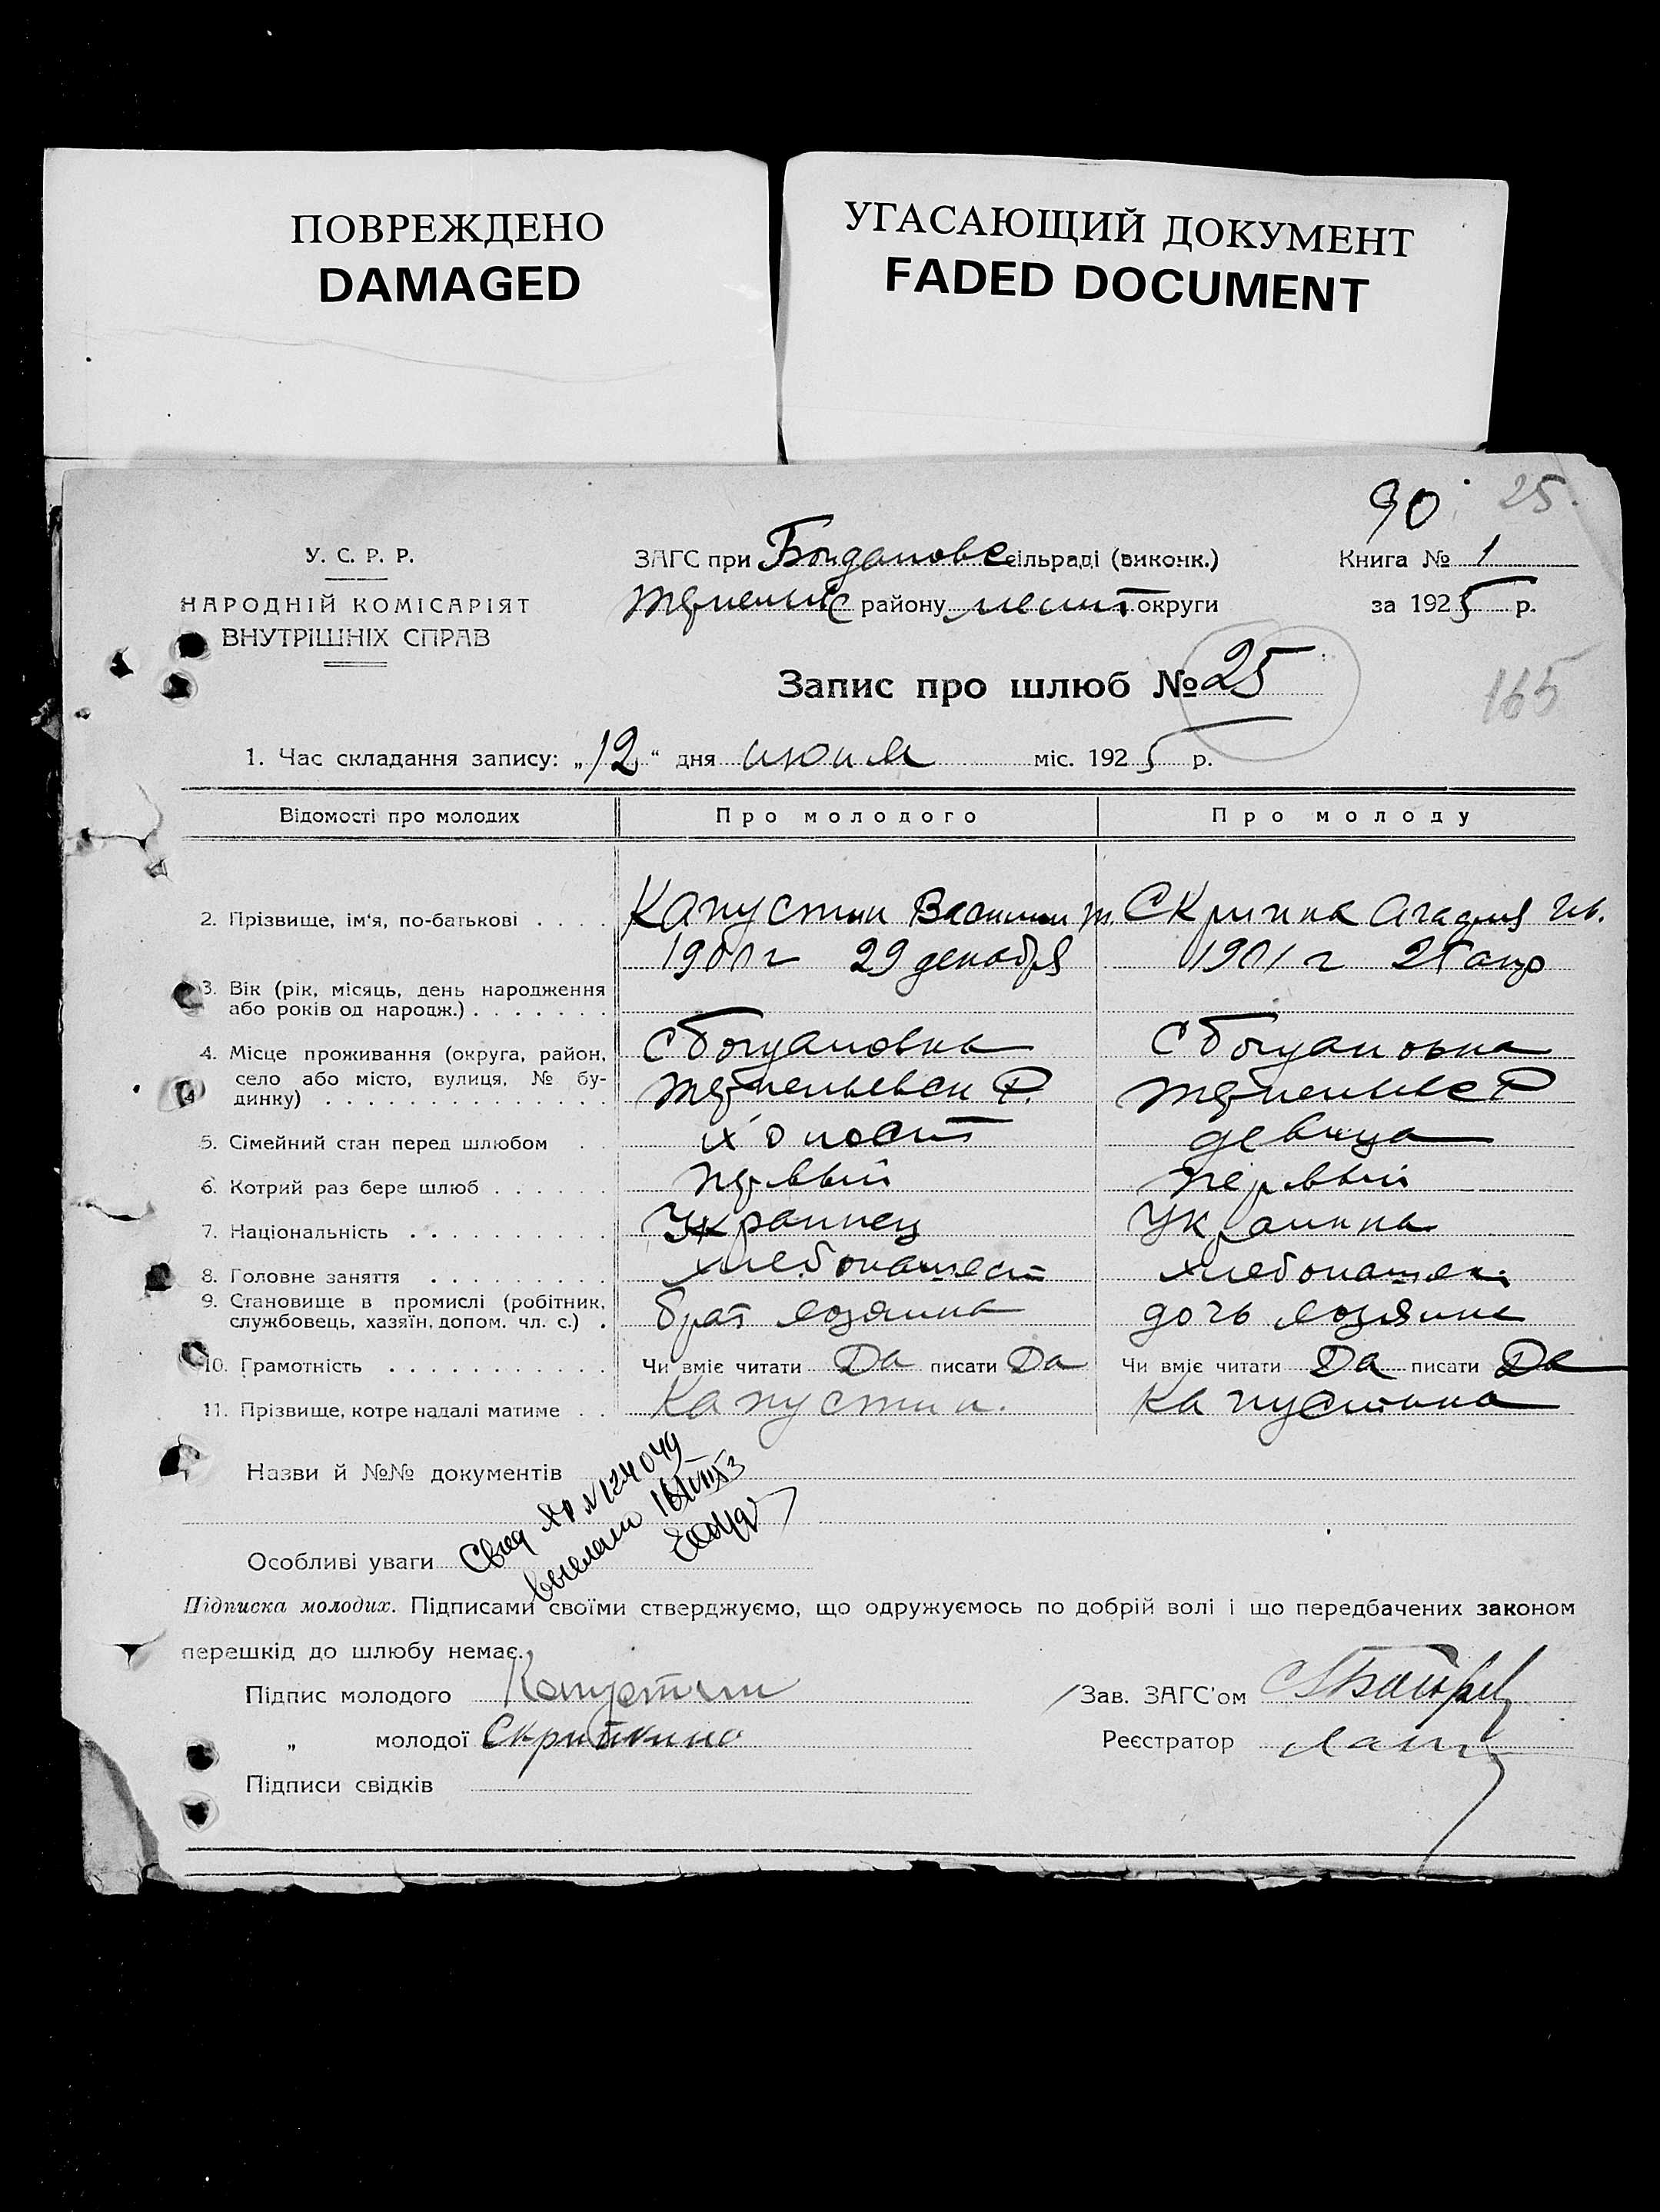 ПОВРЕЖДЕНО
DAMAGED
УГАСАЮЩИЙ ДОКУМЕНТ
FADED DOCUMENT
90 25.
У. С. Р. Р.
НАРОДНІЙ КОМІСАРІЯТ
ВНУТРІШНІХ СПРАВ
ЗАГС при Богдановс сільраді (виконк.)
району округи
Книга № 1
за 1925 р.
Запис про шлюб № 25
165
1. Час складання запису: „12“ дня июня міс. 1925 р.
Відомості про молодих Про молодого Про молоду
2. Прізвище, ім‘я, по-батькові . . . . Капустин Василий Скрипка Агафия Ив.
1900 г 29 декабря 1901 г апр
3. Вік (рік, місяць, день народження
або років од народж.) . . . . . . .
4. Місце проживання (округа, район, с Богдановка с Богдановка
село або місто, вулиця, № бу-
динку) . . . . . . . . . . . . . Р. Р
5. Сімейний стан перед шлюбом . . холост девица
6. Котрий раз бере шлюб . . . . . . первый первый
7. Національність . . . . . . . . . . Украинец Украинка
8. Головне заняття . . . . . . . . . хлебопашест хлебопашес.
9. Становище в промислі (робітник,
службовець, хазяїн, допом. чл. с.) . брат хозяина дочь хозяина
10. Грамотність . . . . . . . . . . . Чи вміє читати Да писати Да Чи вміє читати Да писати Да
11. Прізвище, котре надалі матиме . . Капустин. Капустина
Назви й №№ документів
Свид ЯР №124049
выслано
Особливі уваги
Підписка молодих. Підписами своїми стверджуємо, що одружуємось по добрій волі і що передбачених законом
перешкід до шлюбу немає.
Підпис молодого Капустин
Зав. ЗАГС'ом
„ молодої Скрипкина
Реєстратор
Підписи свідків